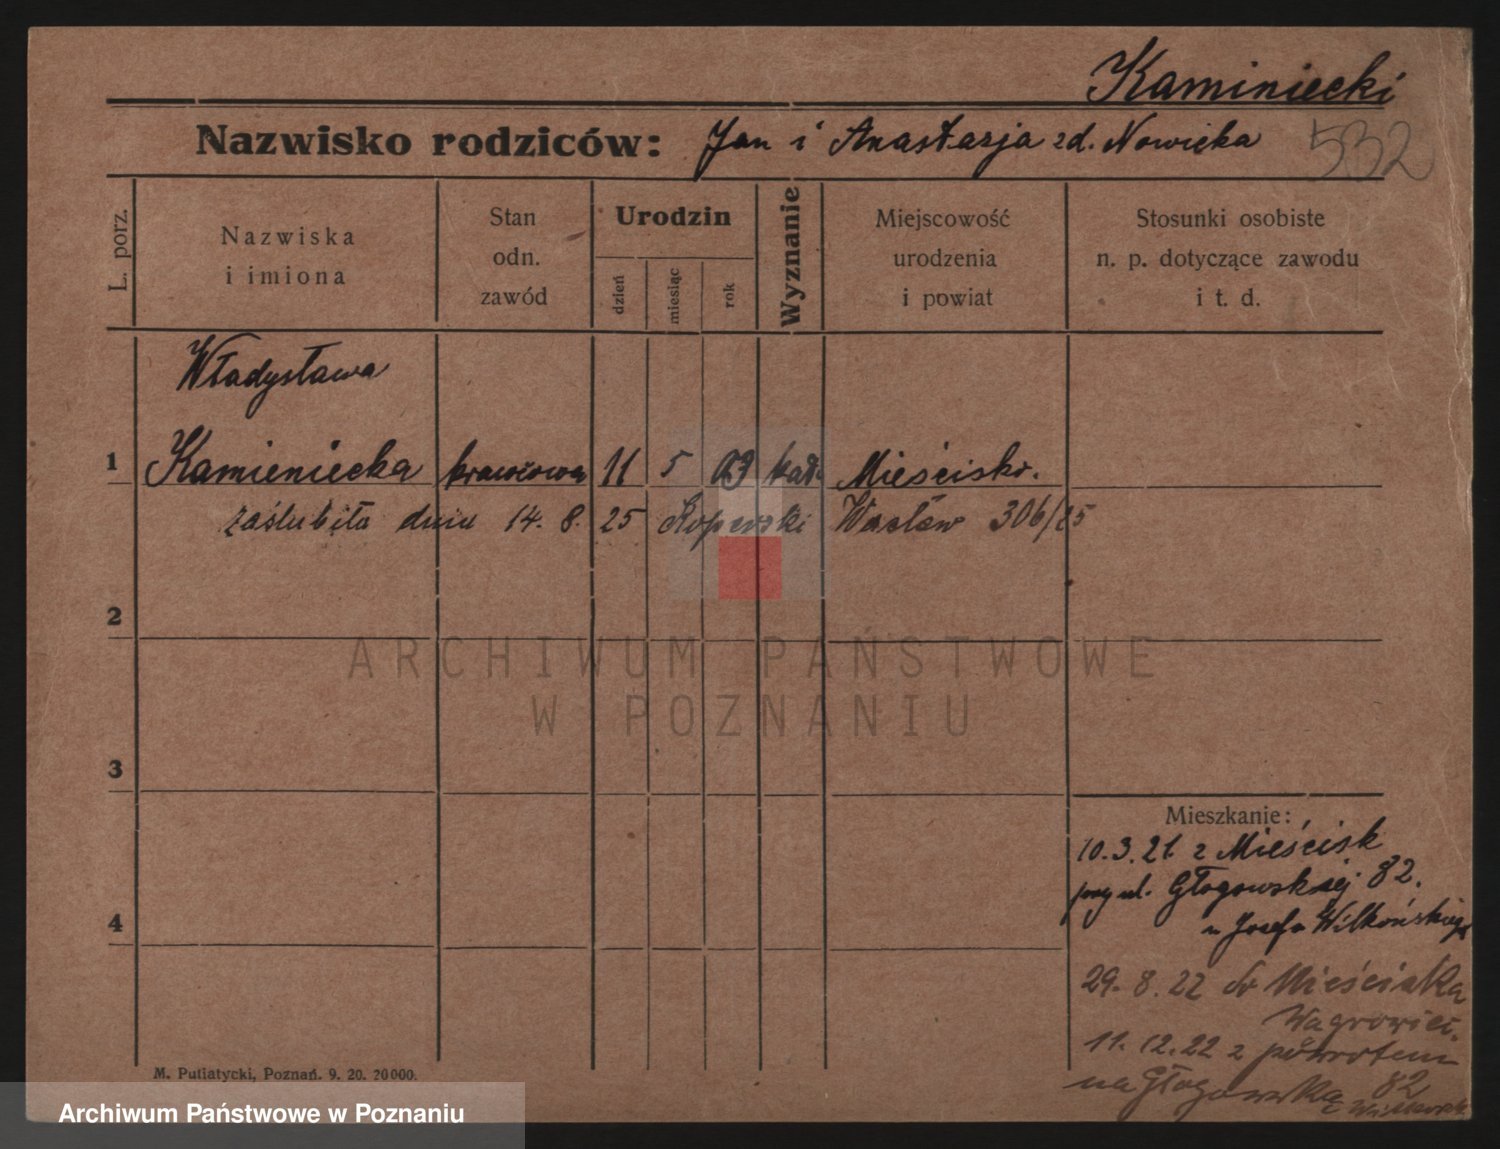 Kaminiecki
Nazwisko rodziców: Jan i Anastazja zd. Nowicka 532
L. porz.
Nazwiska
i imiona
Stan
odn.
zawód
Urodzin
dzień
miesiąc
rok
Wyznanie
Miejscowość
urodzenia
i powiat
Stosunki osobiste
n. p. dotyczące zawodu
i t. d.
Władysława
1 Kamieniecka krawcowa 11 5 03 kat. Mieścisko.
zaślubiła dniu 14. 8. 25 Wacław 306/25
2
ARCHIWUM PAŃSTWOWE
W POZNANIU
3
Mieszkanie:
10.3.21 z Mieścisk
przy ul. Głogowskiej 82.
4
u Józefa Wilkońskiego
29. 8. 22 do Mieściska
Wągrowiec
11. 12. 22 z powrotem
na Głogowską 82
M. Putiatycki, Poznań. 9. 20. 20000.
Archiwum Państwowe w Poznaniu